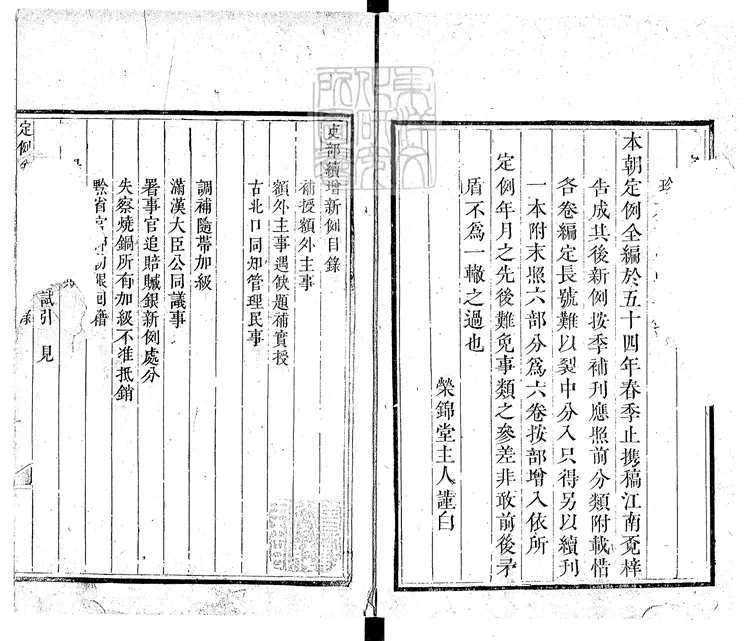 本朝定例全編於五十四年春季止携稿江南覔梓
告成其後新例按季補刊應照前分類附載惜
各卷編定長號難以裂中分入只得另以續刊
一本附末照六部分為六卷按部增入依所
定例年月之先後難免事類之參差非敢前後矛
盾不爲一轍之過也
榮錦堂主人謹白
吏部續增新例目錄
補授額外主事
額外主事遇缺題補實授
古北口同知管理民事
調補隨帶加級
滿漢大臣公同議事
署事官追賠贓銀新例處分
失察燒鍋所有加級不准抵銷
試引見
定例